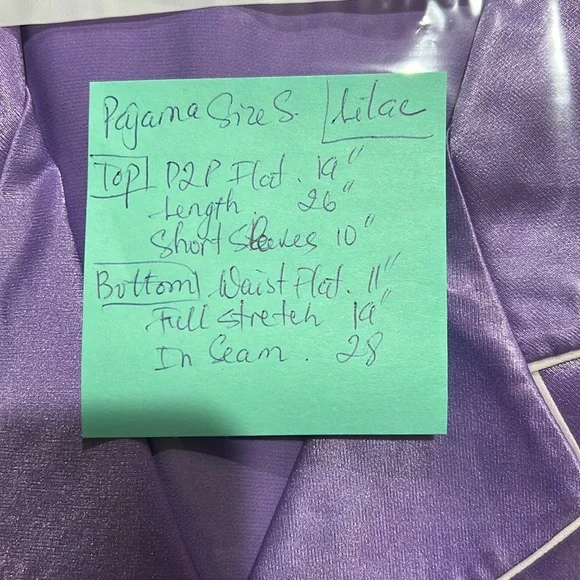 Pajama Size S. Lilac
Top P2P Flat. 19"
Length. 26"
Short Sleeves 10"
Bottom Waist Flat. 11"
Full stretch 19"
In Seam. 28